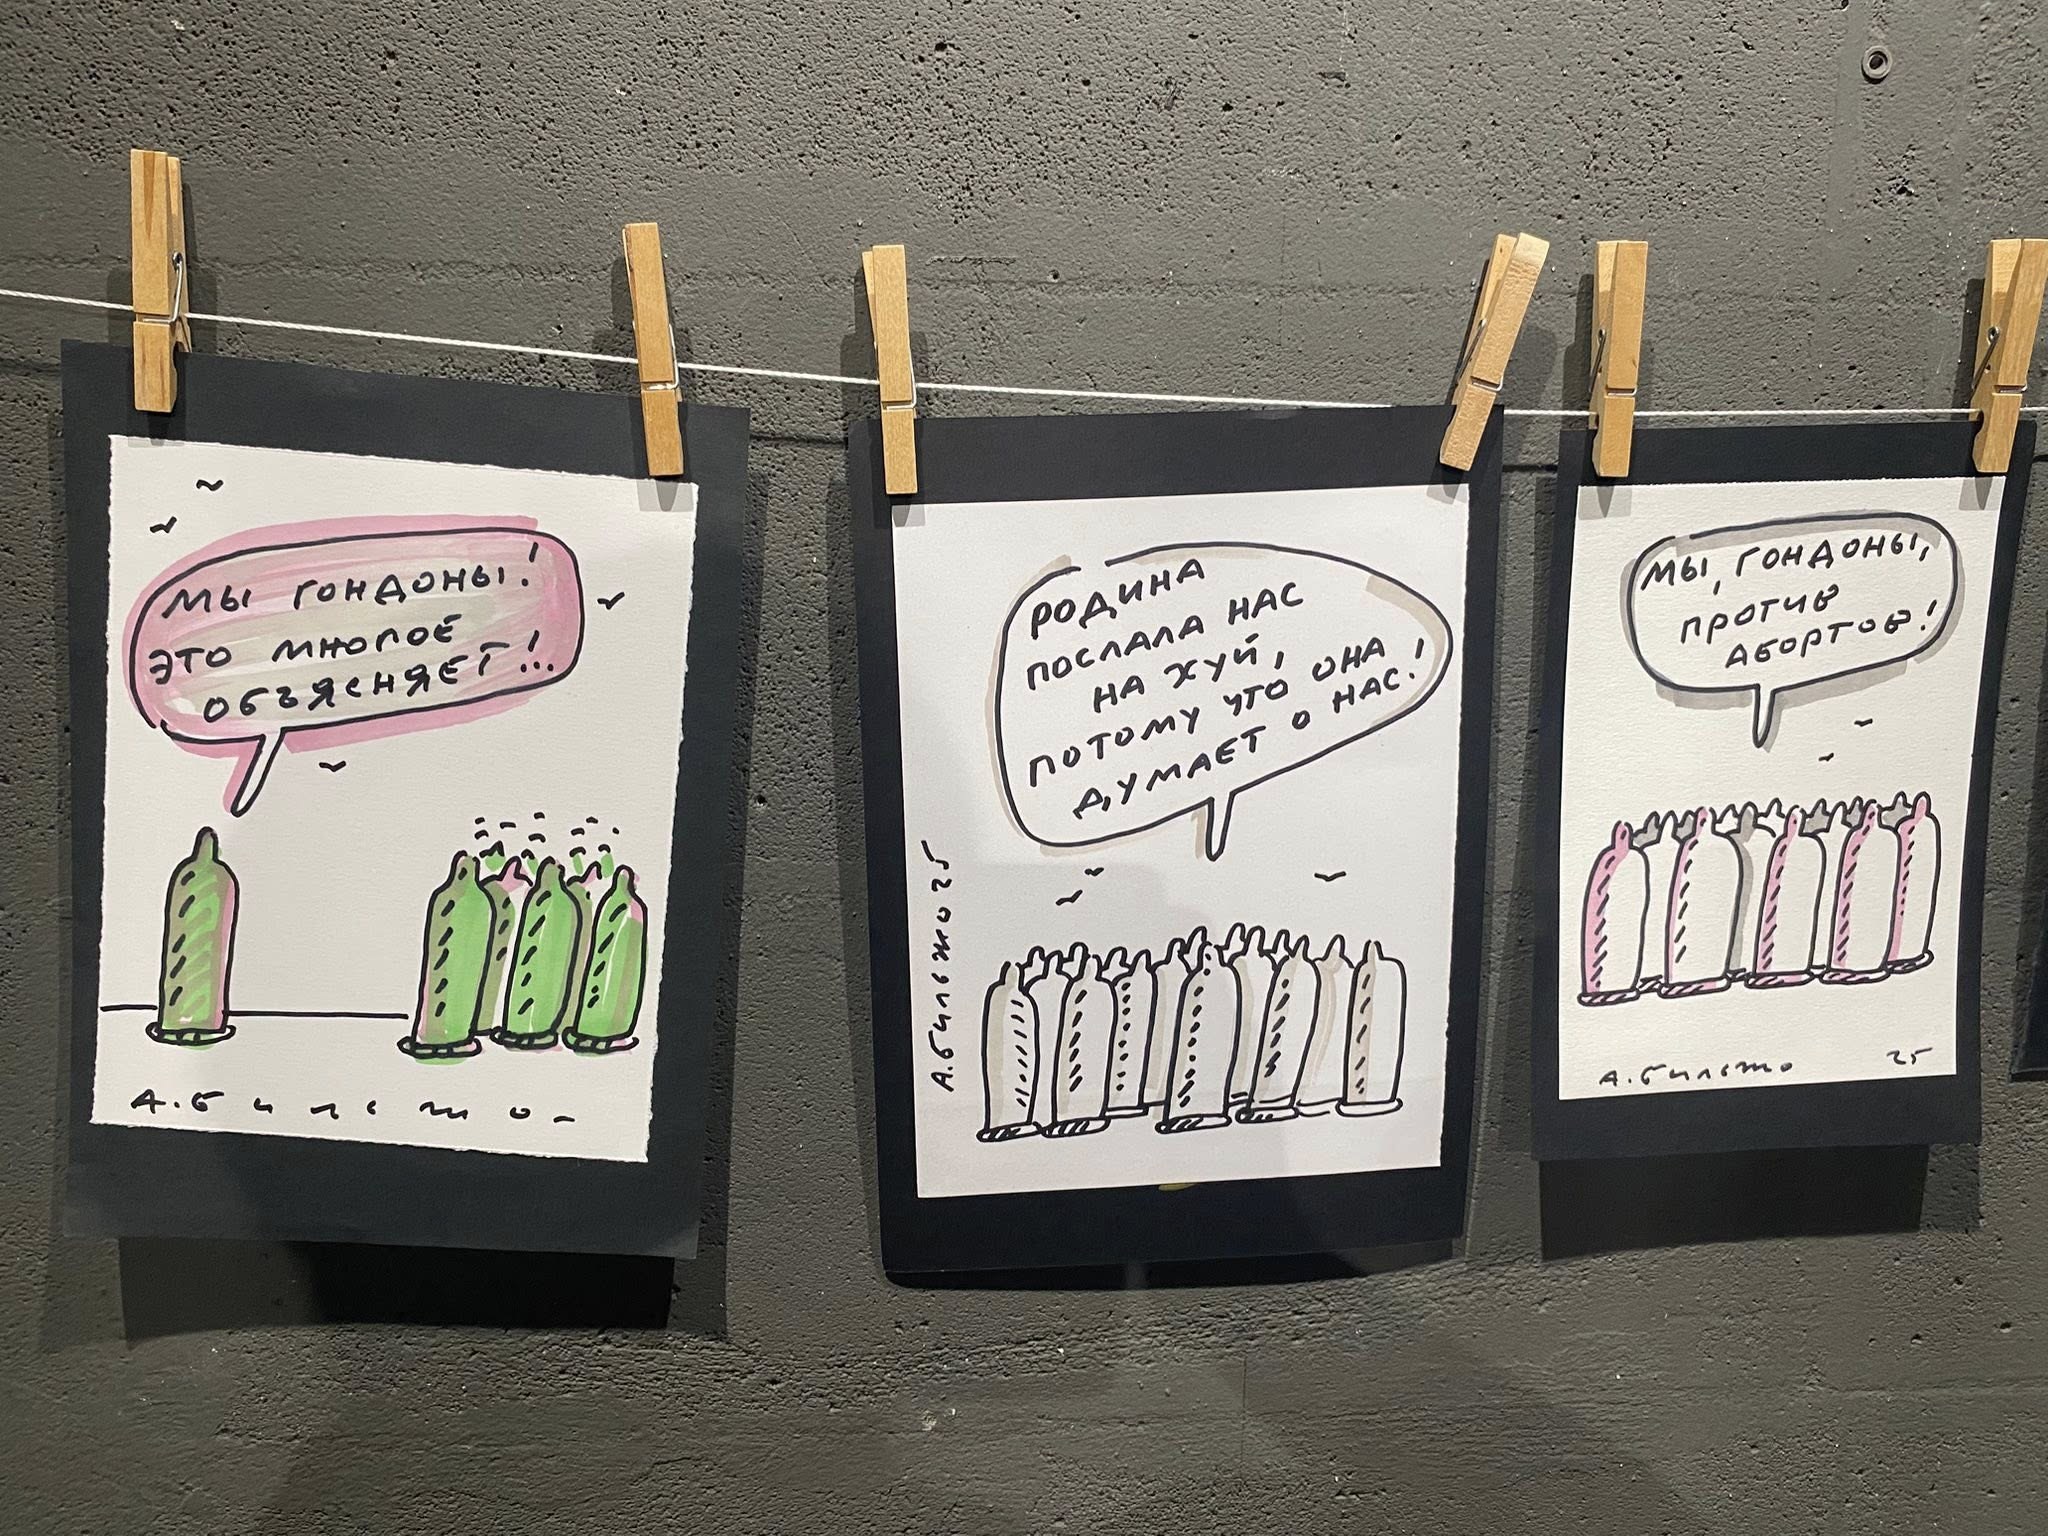 МЫ ГОНДОНЫ!
ЭТО МНОГОЕ
ОБЪЯСНЯЕТ!...
А. Бильжо
РОДИНА
ПОСЛАЛА НАС
НА ХУЙ,
ПОТОМУ ЧТО ОНА
ДУМАЕТ О НАС!
А. Бильжо 25
МЫ, ГОНДОНЫ,
ПРОТИВ
АБОРТОВ!
А. Бильжо 25